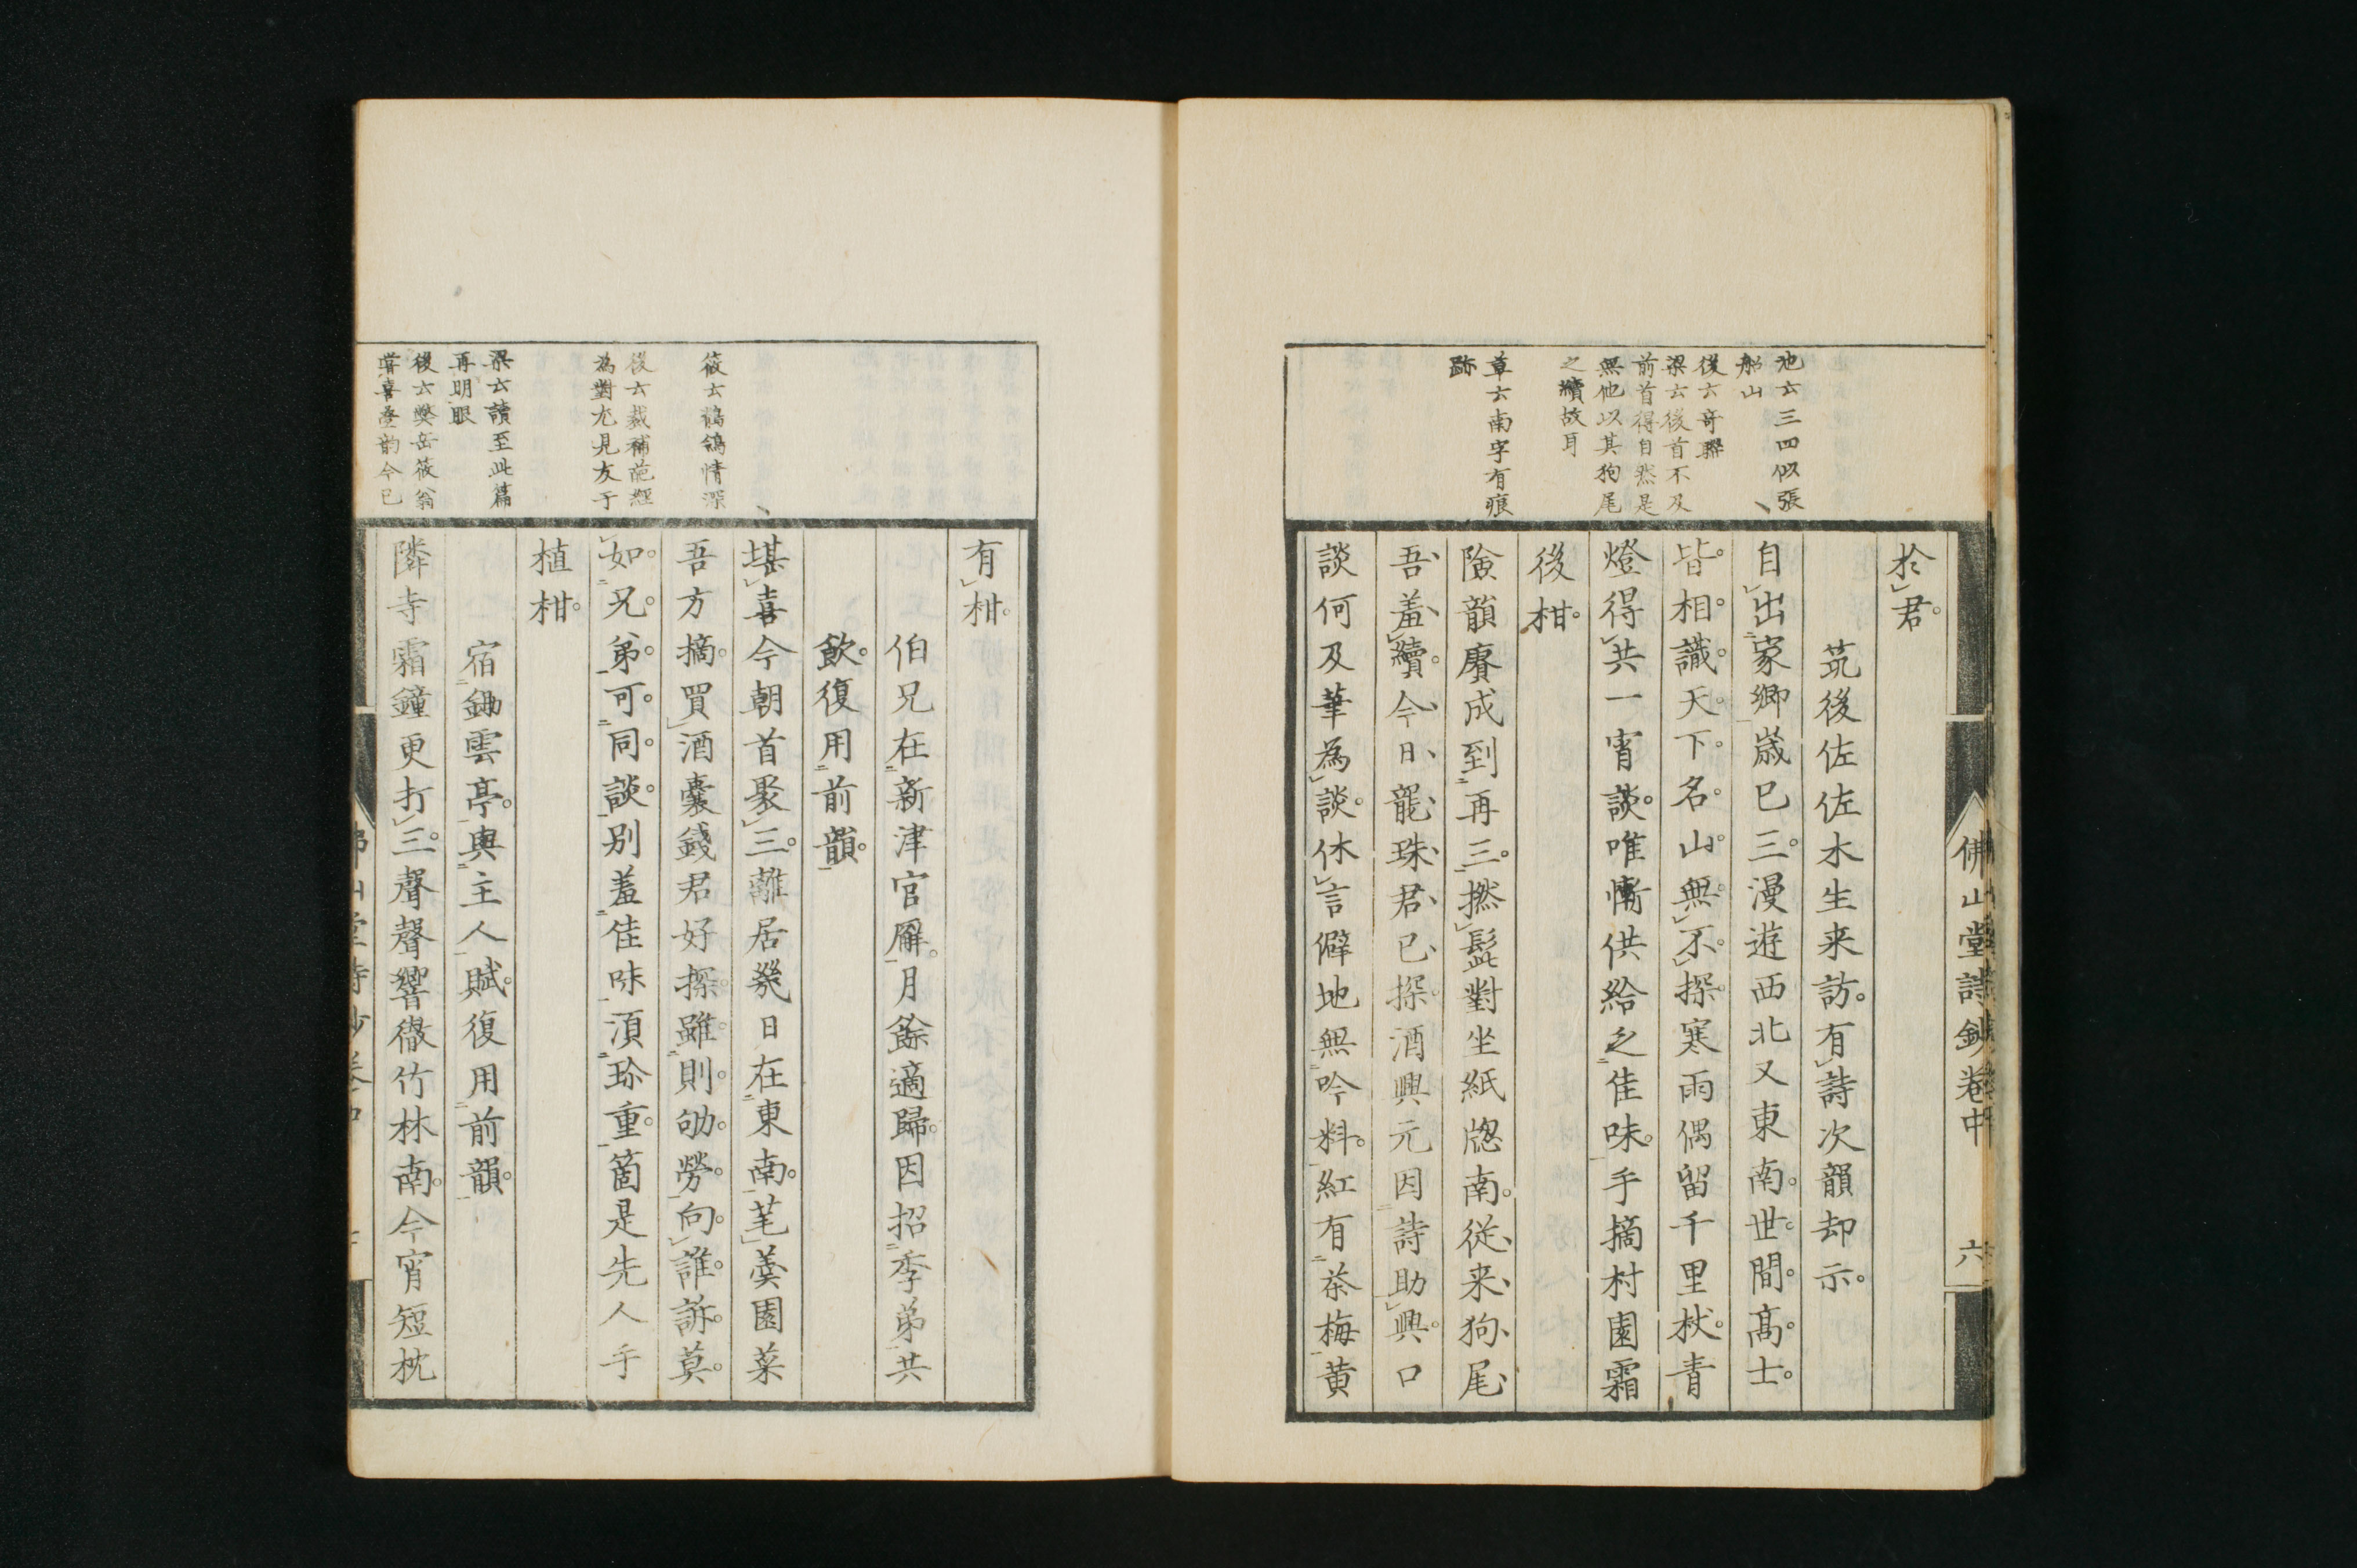 池云三四似張
船山
後云奇聯
梁云後首不及
前首得自然是
無他以其狗尾
之續故耳
草云南字有痕
跡
於君。
筑後佐佐木生来訪。有詩次韻却示。
自出家郷歳已三。漫遊西北又東南。世間。高士。
皆相識。天下名山。無不探。寒雨偶留千里杖。青
燈得共一宵談。唯慚供給乏佳味。手摘村園霜
後柑。
險韻賡成到再三。撚髭對坐紙窓南。従来狗尾
吾羞續。今日龍珠君已探。酒興元因詩助興。口
談何及筆為談。休言僻地無吟料。紅有茶梅黄
佛山堂詩鈔卷中
六
筱云鶺鴒情深
後云裁補葩經
為對尤見友于
梁云讀至此篇
再明眼
後云樊岳筱翁
嘗喜疊韵今已
有柑。
伯兄在新津官廨。月餘適歸。因招季弟共
飲。復用前韻。
堪喜今朝首聚三。離居幾日在東南。芼羹園菜
吾方摘。買酒嚢錢君好探。雖則劬勞。向誰訴。莫
如兄弟可同談。別羞佳味須珍重。箇是先人手
植柑。
宿鋤雲亭。與主人賦。復用前韻。
隣寺霜鐘更打三。聲聲響徹竹林南。今宵短枕